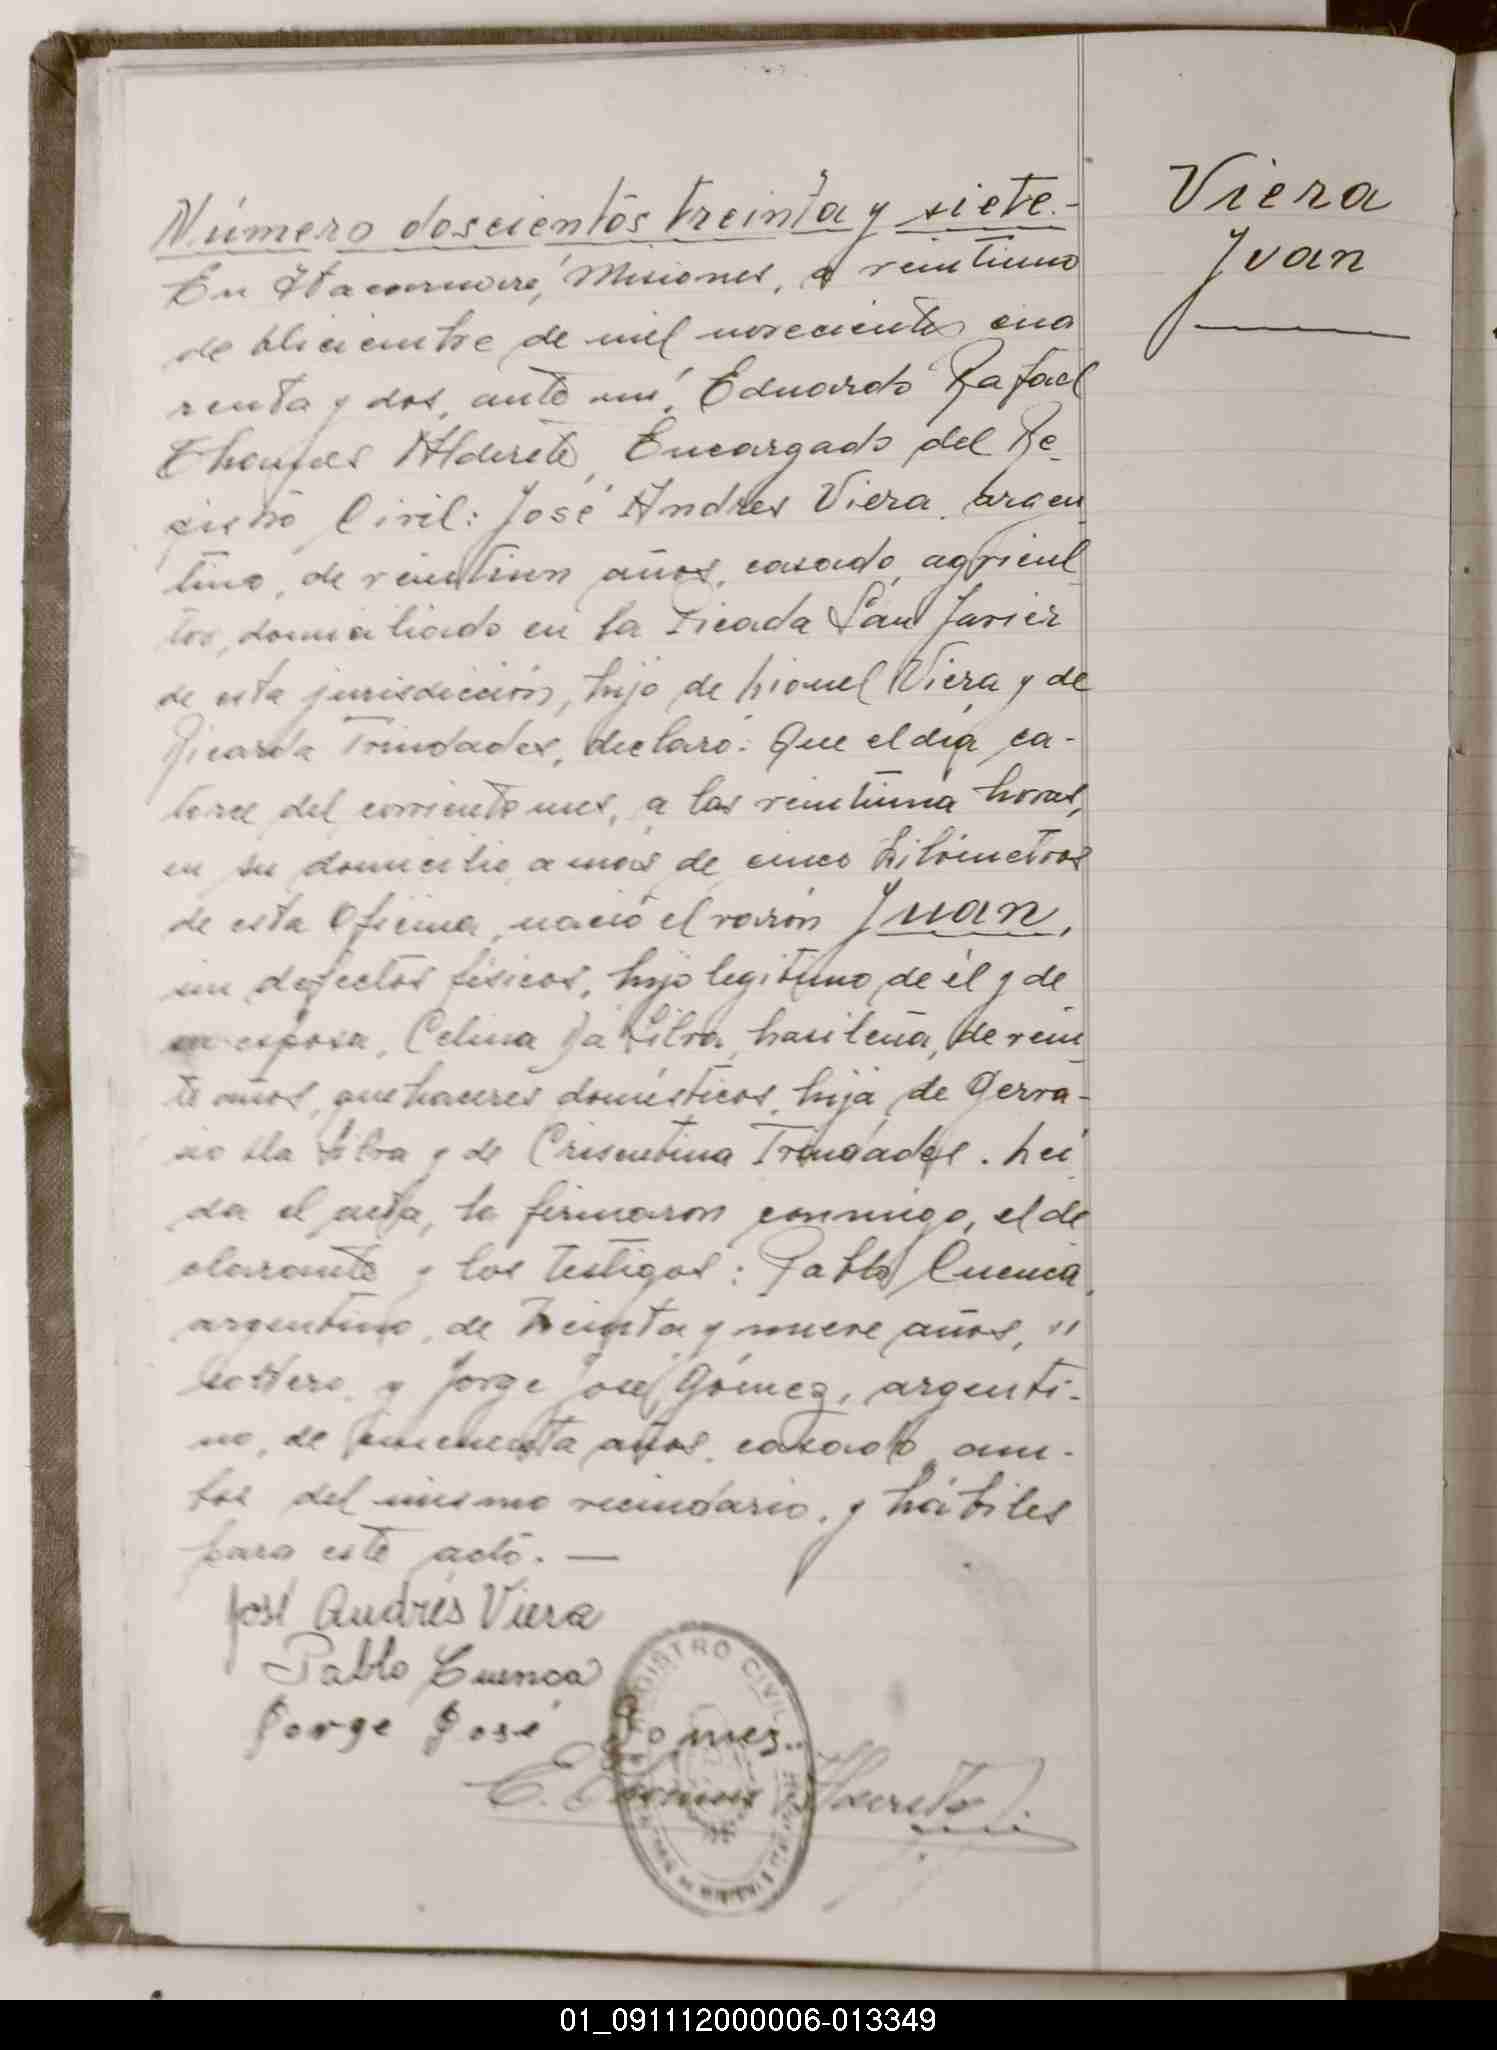 Viera
Juan
Número doscientos treinta y siete.-
En Itacaruaré, Misiones, a veintiuno
de Diciembre de mil novecientos cua
renta y dos, ante mí, Eduardo Rafael
Thomas Alderete, Encargado del Re-
gistro Civil: José Andres Viera, argen
tino, de veintiun años, casado, agricul
tor, domiciliado en la Picada San Javier
de esta jurisdicción, hijo de Lionel Viera y de
Ricarda Trindades, declaró: Que el día ca-
torce del corriente mes, a las veintiuna horas,
en su domicilio a mas de cinco kilómetros
de esta Oficina, nació el varón Juan,
sin defectos físicos, hijo legitimo de él y de
su esposa, Celina Da Silva, brasileña, de vein
te años, quehaceres domésticos, hija de Gerva-
sio Da Silva y de Trindades. Leí
da el acta, la firmaron conmigo, el de
clarante y los testigos: Pablo Cuenca,
argentino, de treinta y nueve años, "
soltero, y Jorge José Gómez, argenti-
no, de cincuenta años, casado, am-
bos del mismo vecindario, y hábiles
para este acto. —
José Andrés Viera
Pablo Cuenca
Jorge José Gomez
E. Thomas Alderete
REGISTRO CIVIL
01_091112000006-013349